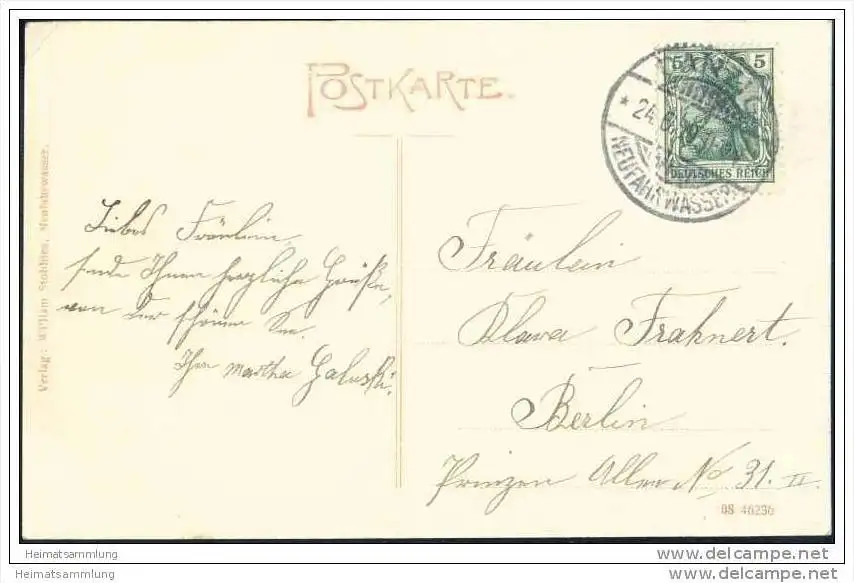 POSTKARTE.
DANZIG
* 24.
NEUFAHRWASSER
5 5
DEUTSCHES REICH
Verlag: William Stobbies, Neufahrwasser.
Liebes Fräulein,
sende Ihnen herzliche Grüße,
von der schönen See.
Ihre Martha Galuski.
Fräulein
Klara Frahnert.
Berlin
Prinzen Allee No 31. II.
08 46236
Heimatsammlung
Heimatsammlung
posted for delcampe.net